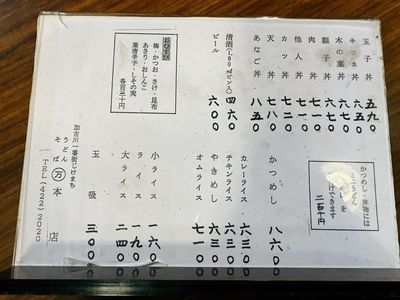 玉子丼 五九〇
キツネ丼 六五〇
木の葉丼 六七〇
親子丼 六七〇
肉丼 七一〇
他人丼 七一〇
カツ丼 七二〇
天丼 七八〇
あなご丼 八五〇
清酒(1.80mlビン入) 四六〇
ビール 六〇〇
おむすび
梅・かつお・さけ・昆布
あさり・おしんこ
葉唐辛子・しその実
各百三十円
かつめし・丼物には
ミニうどん
を
付けできます
二百十円
かつめし 八六〇
カレーライス 六三〇
チキンライス 六三〇
やきめし 六三〇
オムライス 七一〇
小ライス 一六〇
ライス 一九〇
大ライス 二四〇
玉吸 三〇〇
加古川一番街じけまち
うどん
そば
万 本店
TEL(422)2020